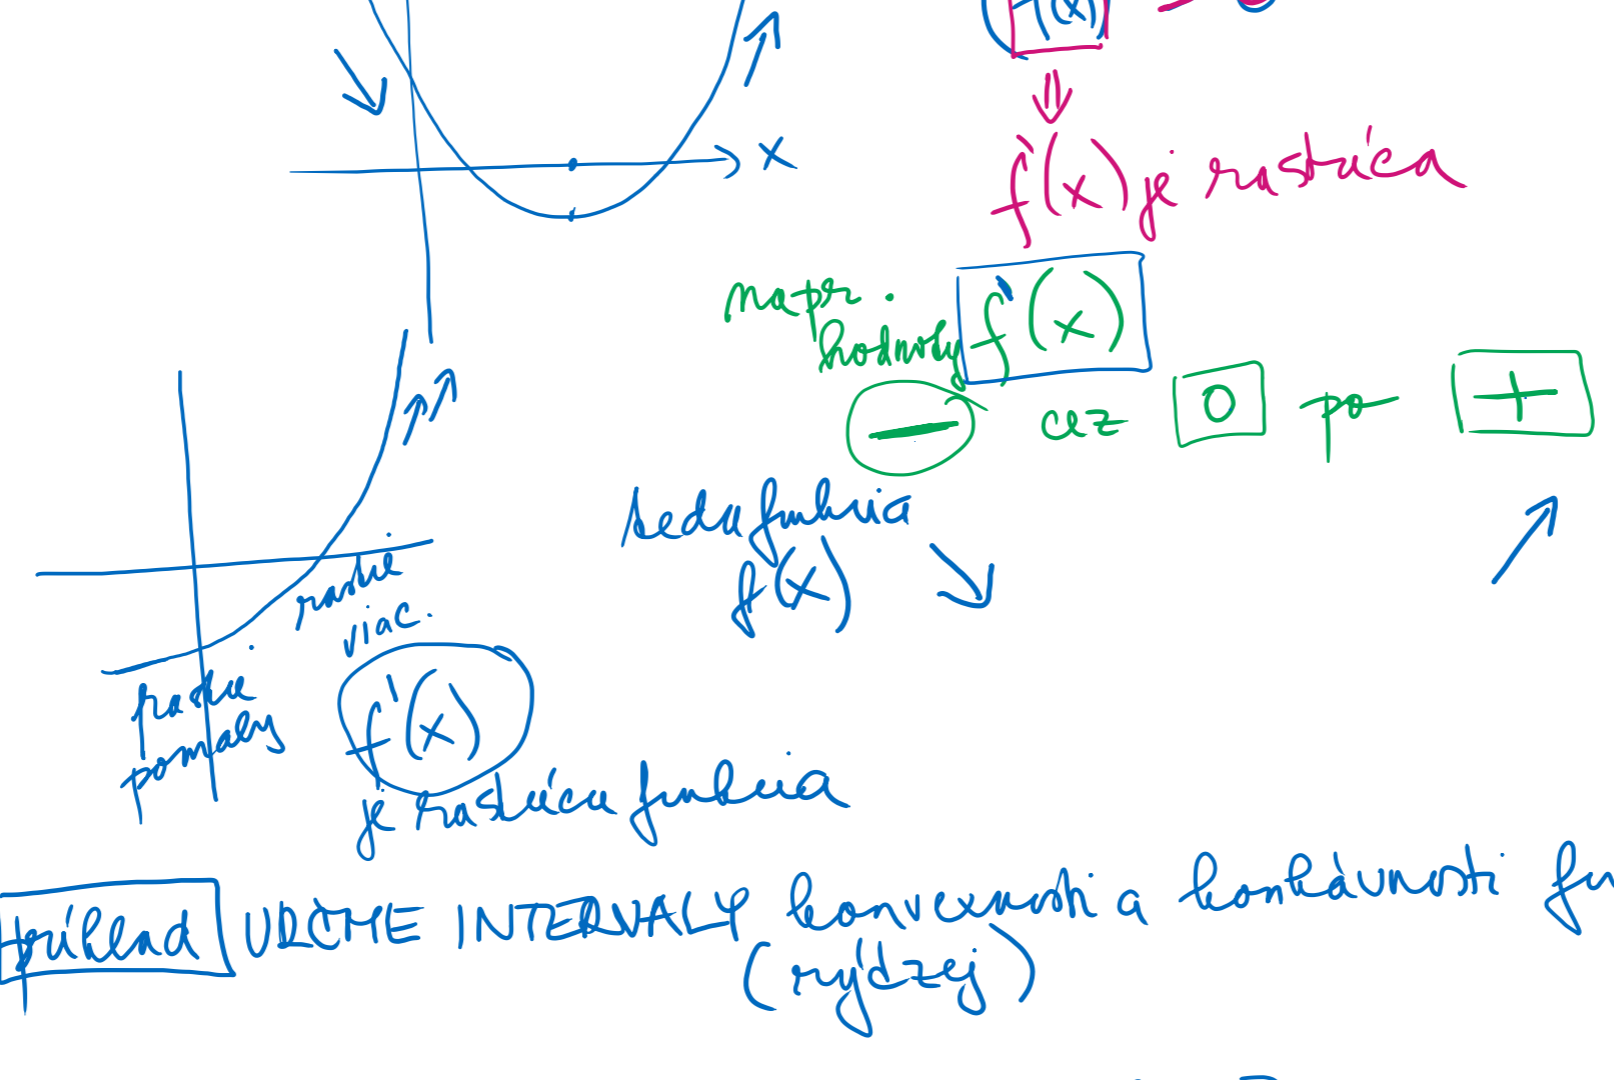 x
f'(x) je rastúca
napr.
hodnoty f'(x)
— cez 0 po +
teda funkcia
f(x)
rastie
viac.
rastie
pomaly
f'(x)
je rastúca funkcia
Príklad URČME INTERVALY konvexnosti a konkávnosti fu
(rýdzej)